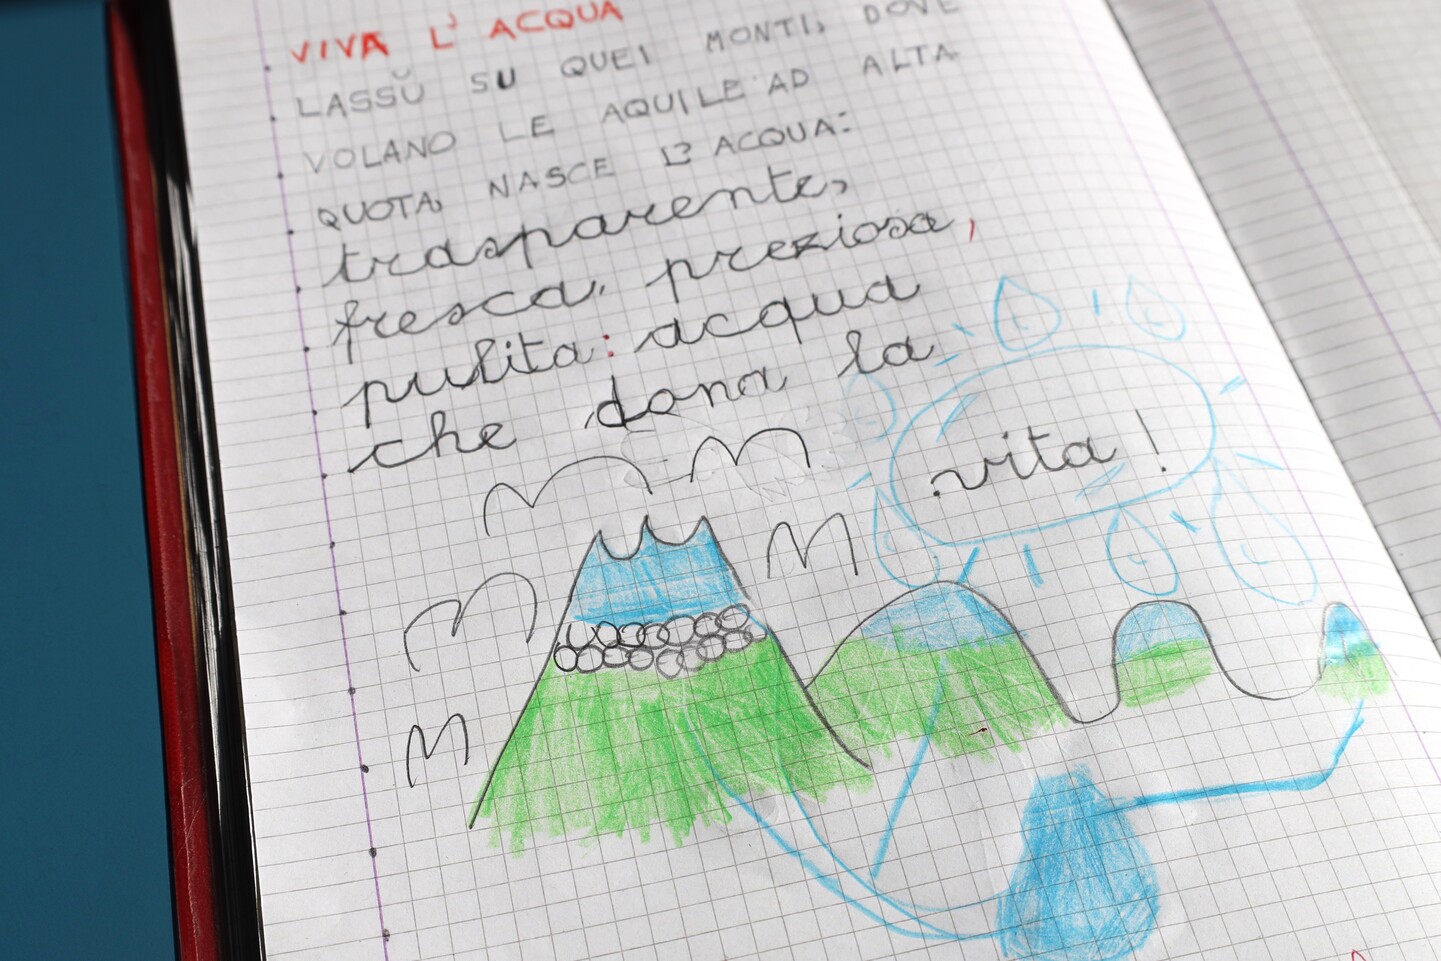 VIVA L'ACQUA
LASSÙ SU QUEI MONTI, DOVE
VOLANO LE AQUILE AD ALTA
QUOTA, NASCE L'ACQUA:
trasparente,
fresca, preziosa,
pulita: acqua
che dona la
vita!